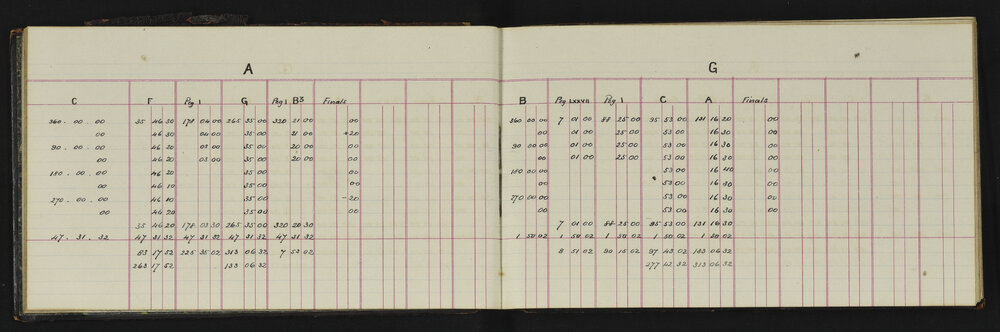 A
C F Peg 1 G Peg 1 B3 Finals
360 . 00 . 00 35 46 20 178 04 00 265 35 00 320 21 00 00
00 46 30 04 00 35 00 21 00 +20
90 . 00 . 00 46 20 03 00 35 00 20 00 00
00 46 20 03 00 35 00 20 00 00
180 . 00 . 00 46 20 35 00 00
00 46 10 35 00 00
270 . 00 . 00 46 10 35 00 -20
00 46 20 35 00 00
35 46 20 178 03 30 265 35 00 320 20 30
47 . 31 . 32 47 31 32 47 31 32 47 31 32 47 31 32
83 17 52 225 35 02 313 06 32 7 52 02
263 17 52 133 06 32
G
B Peg LXXVII Peg 1 C A Finals
360 00 00 7 01 00 88 25 00 95 53 00 131 16 20 00
00 01 00 25 00 53 00 16 30 00
90 00 00 01 00 25 00 53 00 16 30 00
00 01 00 25 00 53 00 16 30 00
180 00 00 53 00 16 40 00
00 53 00 16 30 00
270 00 00 53 00 16 30 00
00 53 00 16 30 00
7 01 00 88 25 00 95 53 00 131 16 30
1 50 02 1 50 02 1 50 02 1 50 02 1 50 02
8 51 02 90 15 02 97 43 02 133 06 32
277 43 32 313 06 32